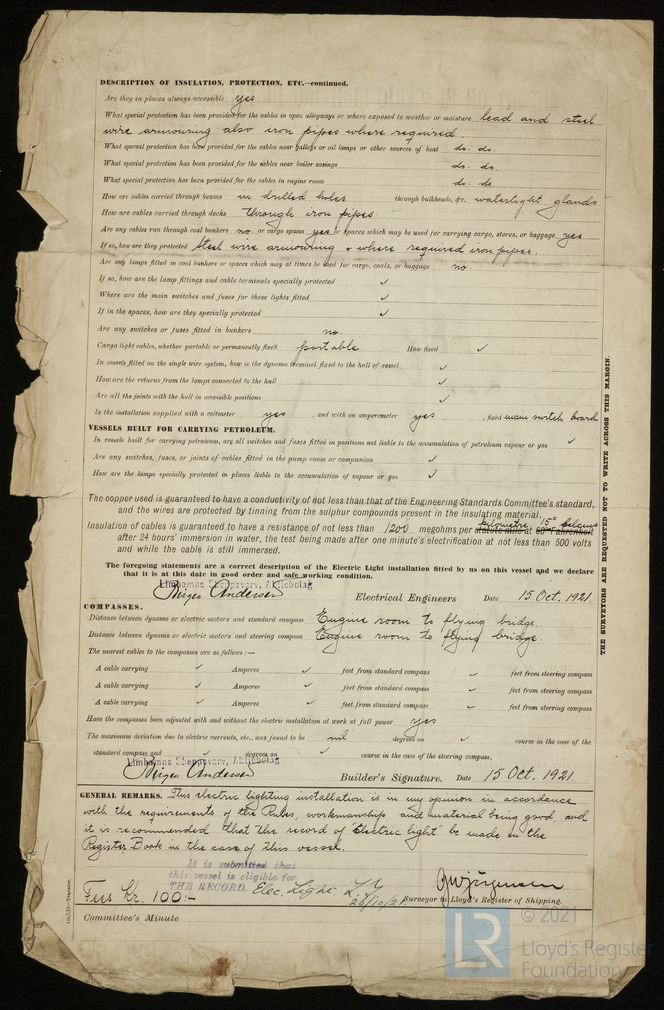 DESCRIPTION OF INSULATION, PROTECTION, ETC.—continued.
Are they in places always accessible yes
What special protection has been provided for the cables in open alleyways or where exposed to weather or moisture lead and steel
wire armouring also iron pipes where required.
What special protection has been provided for the cables near galleys or oil lamps or other sources of heat do. do.
What special protection has been provided for the cables near boiler casings do. do.
What special protection has been provided for the cables in engine room do. do.
How are cables carried through beams in drilled holes through bulkheads, &c. watertight glands
How are cables carried through decks through iron pipes.
Are any cables run through coal bunkers no or cargo spaces yes or spaces which may be used for carrying cargo, stores, or baggage yes
If so, how are they protected Steel wire armouring & where required iron pipes.
Are any lamps fitted in coal bunkers or spaces which may at times be used for cargo, coals, or baggage no.
If so, how are the lamp fittings and cable terminals specially protected ✓
Where are the main switches and fuses for these lights fitted ✓
If in the spaces, how are they specially protected ✓
Are any switches or fuses fitted in bunkers no.
Cargo light cables, whether portable or permanently fixed portable How fixed ✓
In vessels fitted on the single wire system, how is the dynamo terminal fixed to the hull of vessel ✓
How are the returns from the lamps connected to the hull ✓
Are all the joints with the hull in accessible positions ✓
Is the installation supplied with a voltmeter yes, and with an amperemeter yes, fixed main switch board
VESSELS BUILT FOR CARRYING PETROLEUM.
In vessels built for carrying petroleum, are all switches and fuses fitted in positions not liable to the accumulation of petroleum vapour or gas ✓
Are any switches, fuses, or joints of cables fitted in the pump room or companion ✓
How are the lamps specially protected in places liable to the accumulation of vapour or gas ✓
The copper used is guaranteed to have a conductivity of not less than that of the Engineering Standards Committee's standard,
and the wires are protected by tinning from the sulphur compounds present in the insulating material.
kilometre 15° Celcius
Insulation of cables is guaranteed to have a resistance of not less than 1200 megohms per statute mile at 60° Fahrenheit
after 24 hours' immersion in water, the test being made after one minute's electrification at not less than 500 volts
and while the cable is still immersed.
The foregoing statements are a correct description of the Electric Light installation fitted by us on this vessel and we declare
that it is at this date in good order and safe working condition.
Limhamns Skeppsvarv, Aktiebolag
Birger Andersen Electrical Engineers Date 15 Oct. 1921.
COMPASSES.
Distance between dynamo or electric motors and standard compass Engine room to flying bridge.
Distance between dynamo or electric motors and steering compass Engine room to flying bridge.
The nearest cables to the compasses are as follows:—
A cable carrying ✓ Amperes ✓ feet from standard compass ✓ feet from steering compass
A cable carrying ✓ Amperes ✓ feet from standard compass ✓ feet from steering compass
A cable carrying ✓ Amperes ✓ feet from standard compass ✓ feet from steering compass
Have the compasses been adjusted with and without the electric installation at work at full power yes
The maximum deviation due to electric currents, etc., was found to be nil degrees on ✓ course in the case of the
standard compass and ✓ degrees on ✓ course in the case of the steering compass.
Limhamns Skeppsvarv, Aktiebolag
Birger Andersen Builder's Signature. Date 15 Oct. 1921
GENERAL REMARKS. This electric lighting installation is in my opinion in accordance
with the requirements of the Rules, workmanship and material being good, and
it is recommended that the record of "Electric light" be made in the
Register Book in the case of this vessel.
It is submitted that
this vessel is eligible for
THE RECORD. Elec. Light
Fees Kr. 100:-
26/10/21
Surveyor to Lloyd's Register of Shipping.
Committee's Minute
THE SURVEYORS ARE REQUESTED NOT TO WRITE ACROSS THIS MARGIN.
© 2021
LR
Lloyd's Register
Foundation